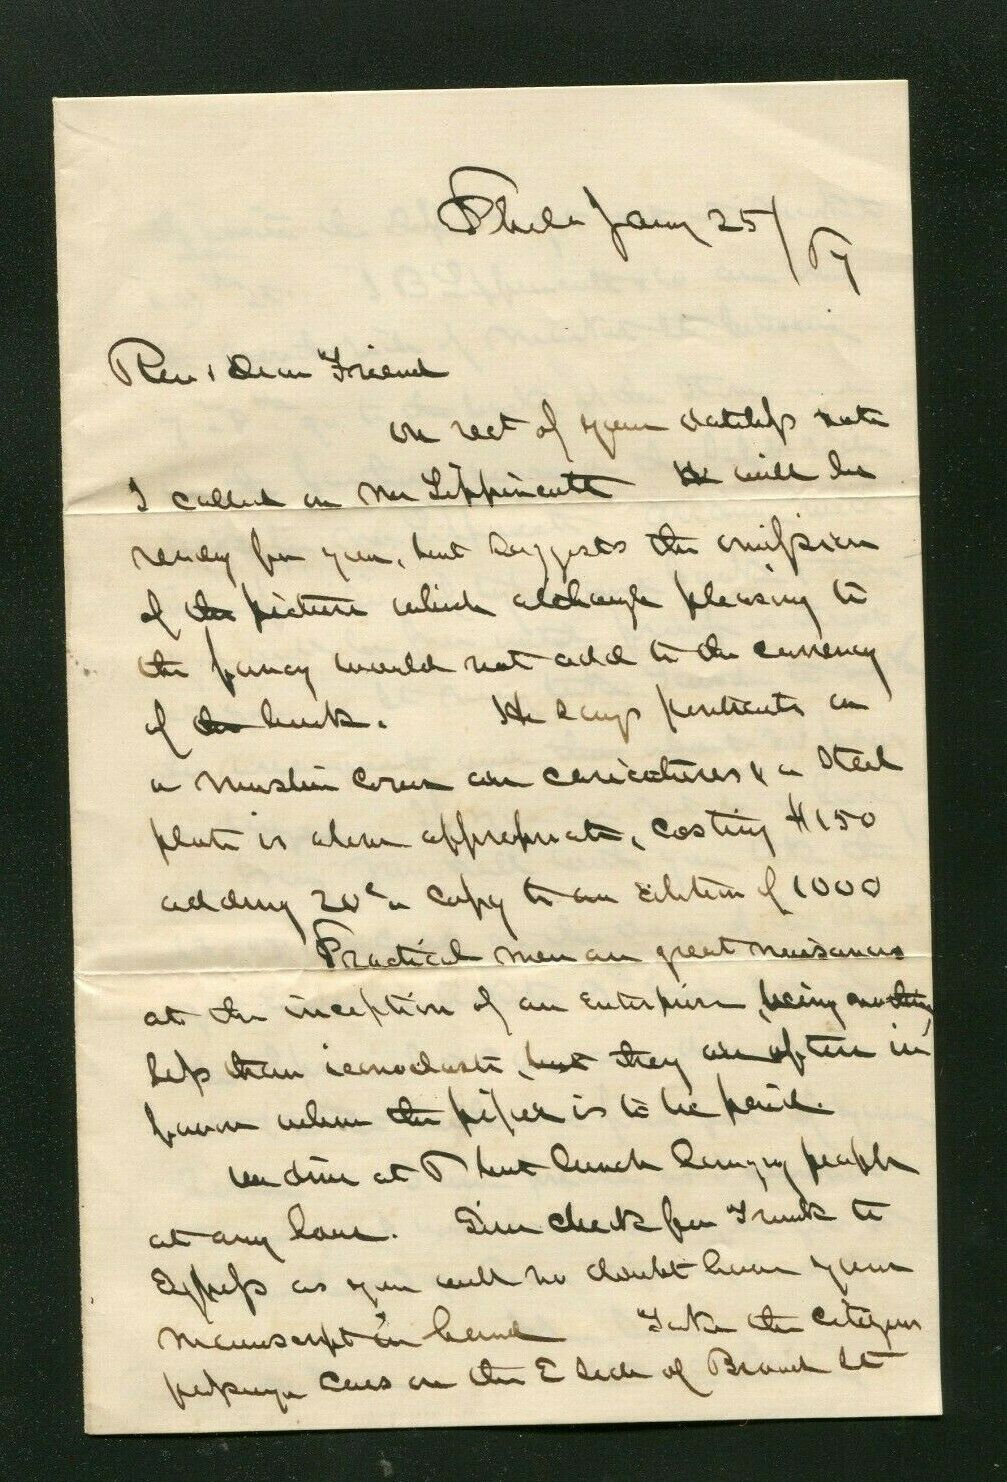 Phila Jany 25/
Rev & Dear Friend
on rect of your dateless note
I called on Mr Lippincott He will be
ready for you, but suggests the omission
of the picture which although pleasing to
the fancy would not add to the currency
of the book. He says portraits in
a muslin cover are caricatures & a steel
plate is alone appropriate, costing $150
adding 20c a copy to an edition of 1000
Practical men are great nuisances
at the inception of an enterprise, being nothing
less than iconoclasts, but they are often in
favor when the piper is to be paid.
We dine at but lunch hungry people
at any hour. Give check for Trunk to
Express as you will no doubt have your
Manuscript in hand Take the citizens
passenger cars on the E side of Broad St